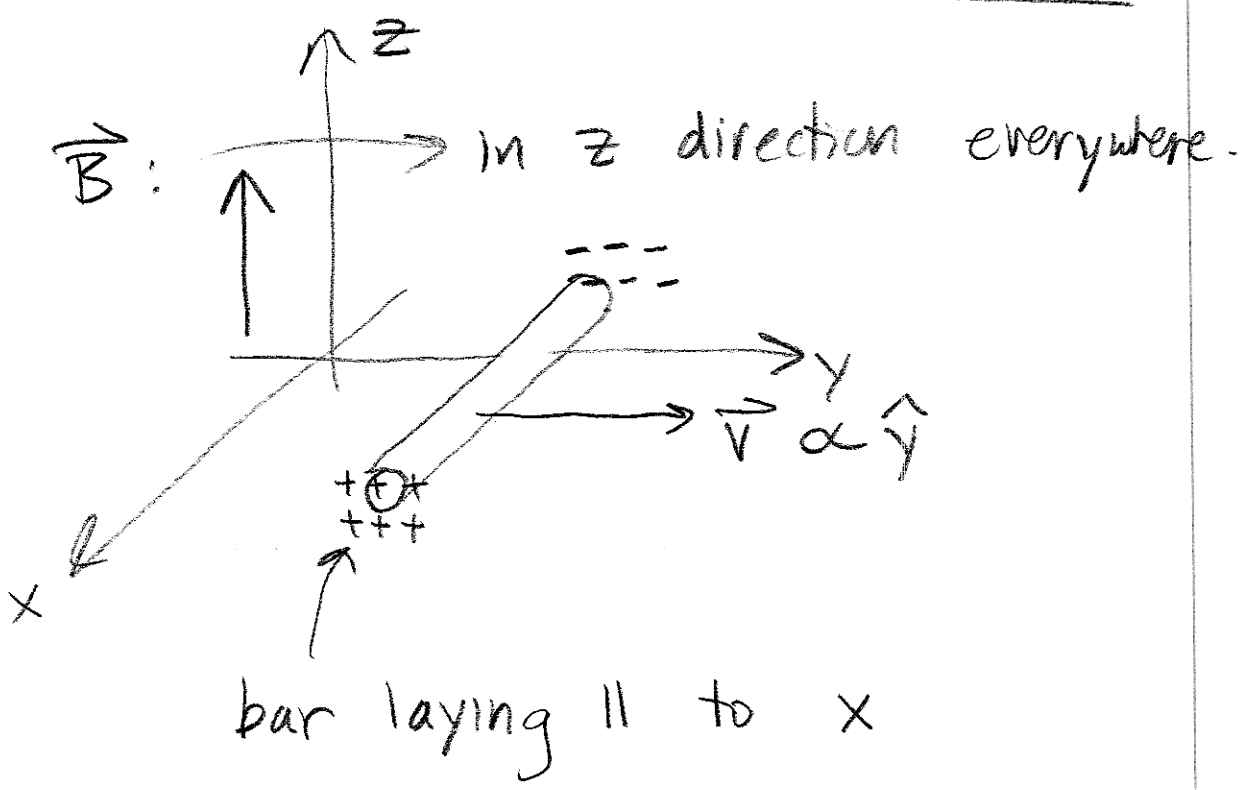 z
B⃗ : in z direction everywhere.
- - -
- - -
y
v⃗ ∝ ŷ
+ + +
+ + +
x
bar laying || to x